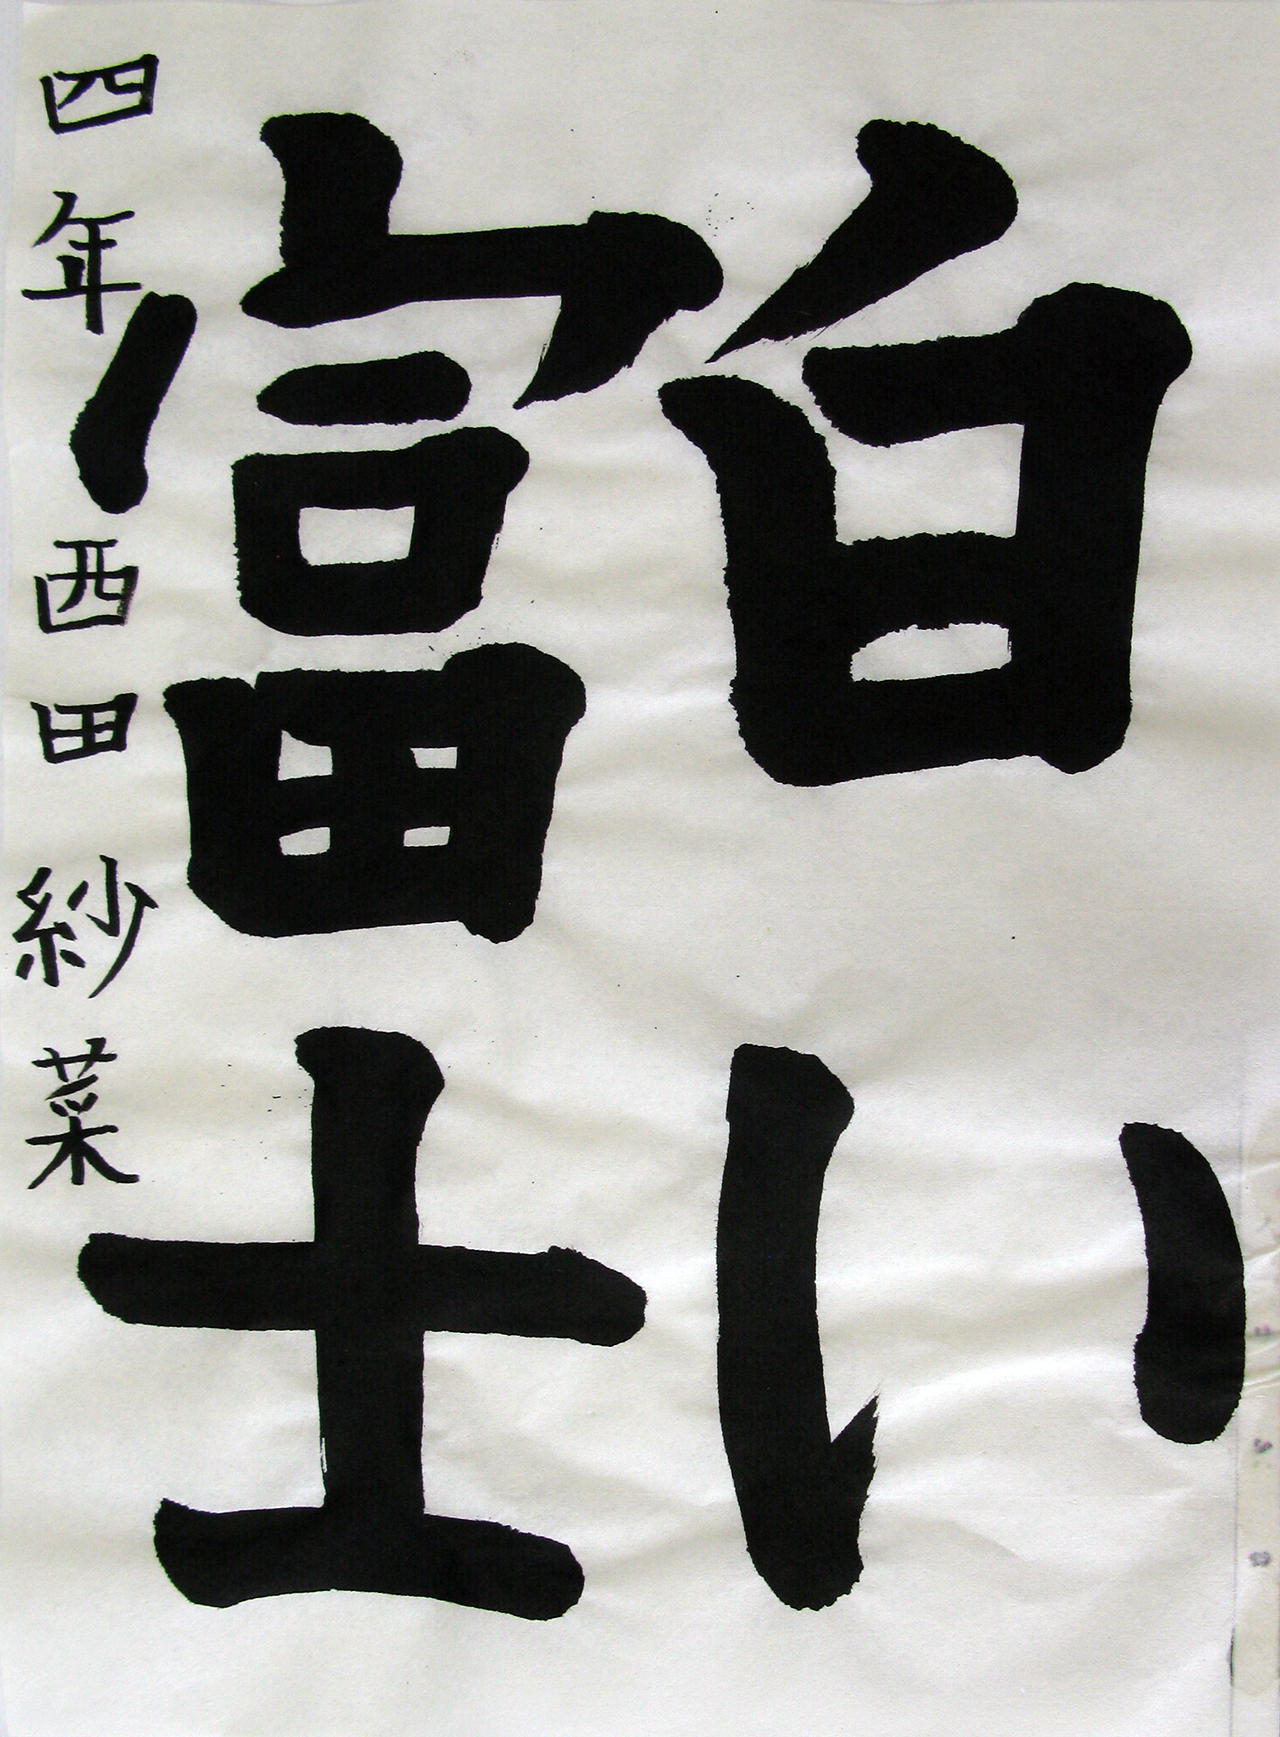 白い
富士
四年 西田紗菜